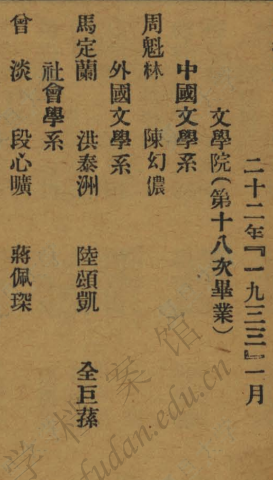 二十二年『一九三三』一月
文學院(第十八次畢業)
中國文學系
周魁林 陳幻儂
外國文學系
馬定蘭 洪泰洲 陸頌凱 全巨蓀
社會學系
曾淡 段心曠 蔣佩琛